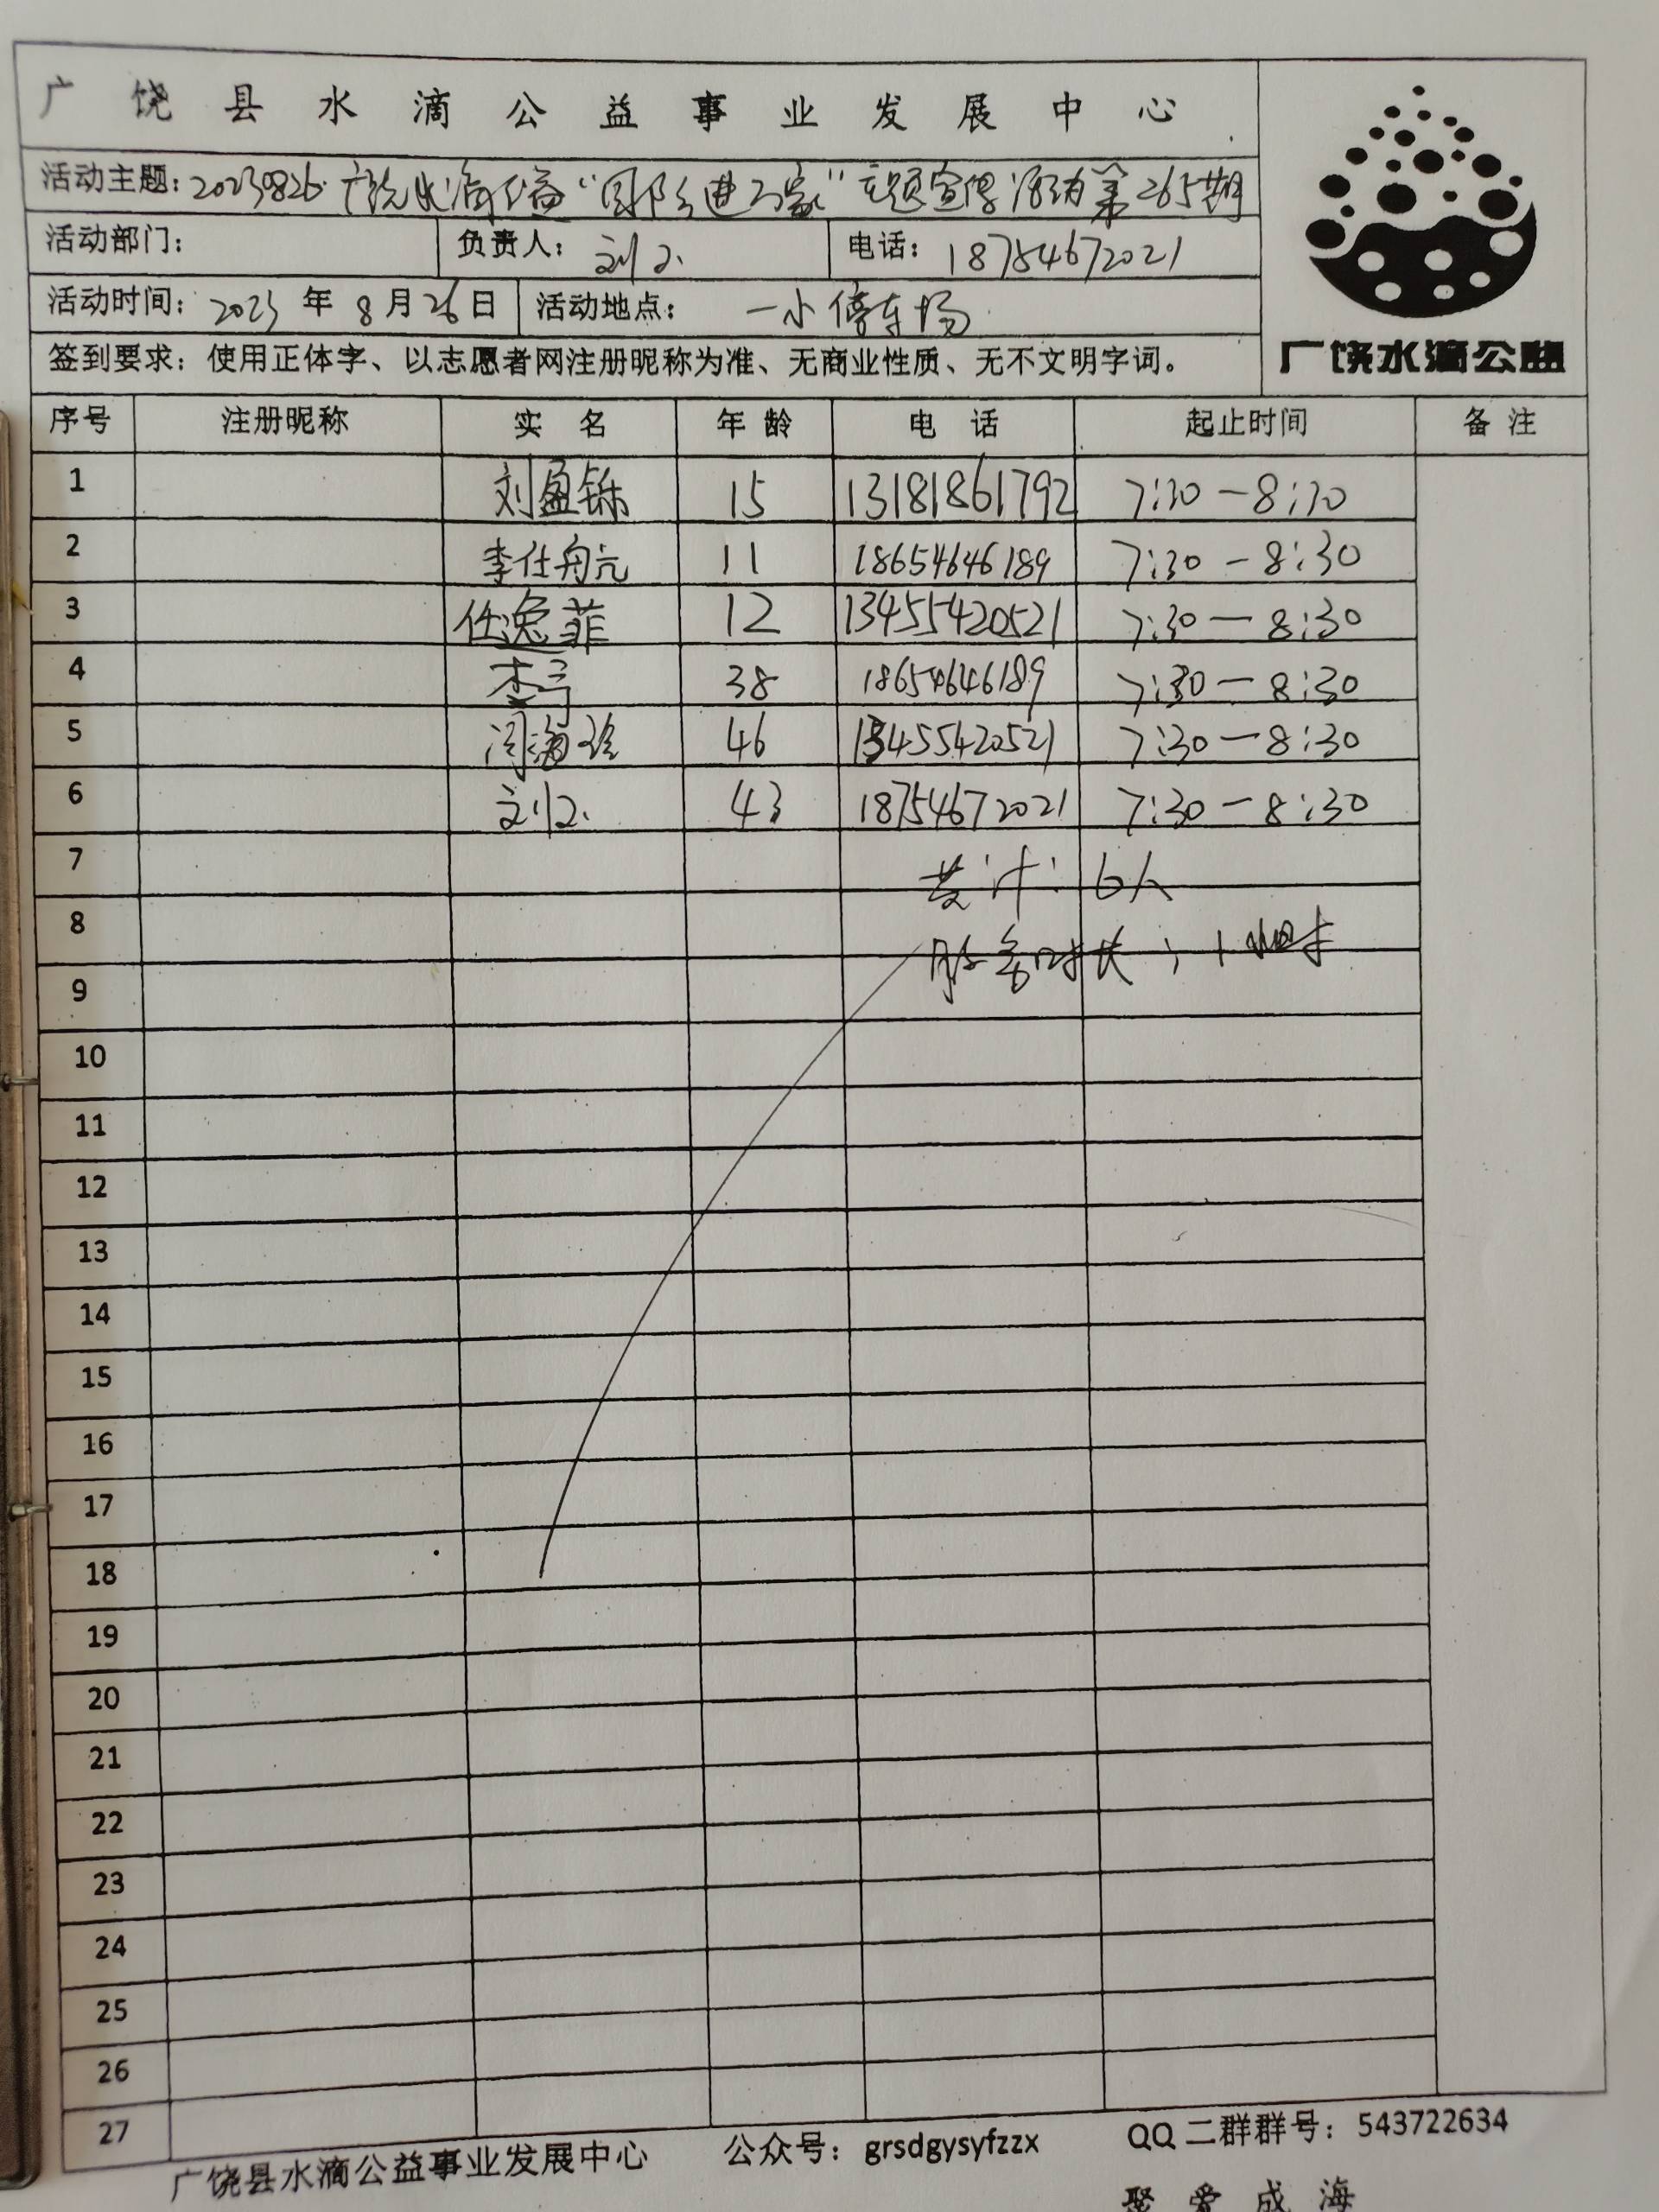 广饶县水滴公益事业发展中心
活动主题：20230826广饶水滴公益“团队进万家”主题宣传活动第265期
活动部门： 负责人：刘 电话：18754672021
活动时间：2023年8月26日 活动地点：一小停车场
签到要求：使用正体字、以志愿者网注册昵称为准、无商业性质、无不文明字词。
广饶水滴公益
序号 注册昵称 实 名 年 龄 电 话 起止时间 备 注
1 刘盈铄 15 13181861792 7:30-8:30
2 李仕舟亢 11 18654646189 7:30-8:30
3 任逸菲 12 13455420521 7:30-8:30
4 38 18654646189 7:30-8:30
5 闫海珍 46 13455420521 7:30-8:30
6 刘 43 18754672021 7:30-8:30
7 共计：6人
8 服务时长：1小时
9
10
11
12
13
14
15
16
17
18
19
20
21
22
23
24
25
26
27
广饶县水滴公益事业发展中心 公众号：grsdgysyfzzx QQ二群群号：543722634
聚 爱 成 海